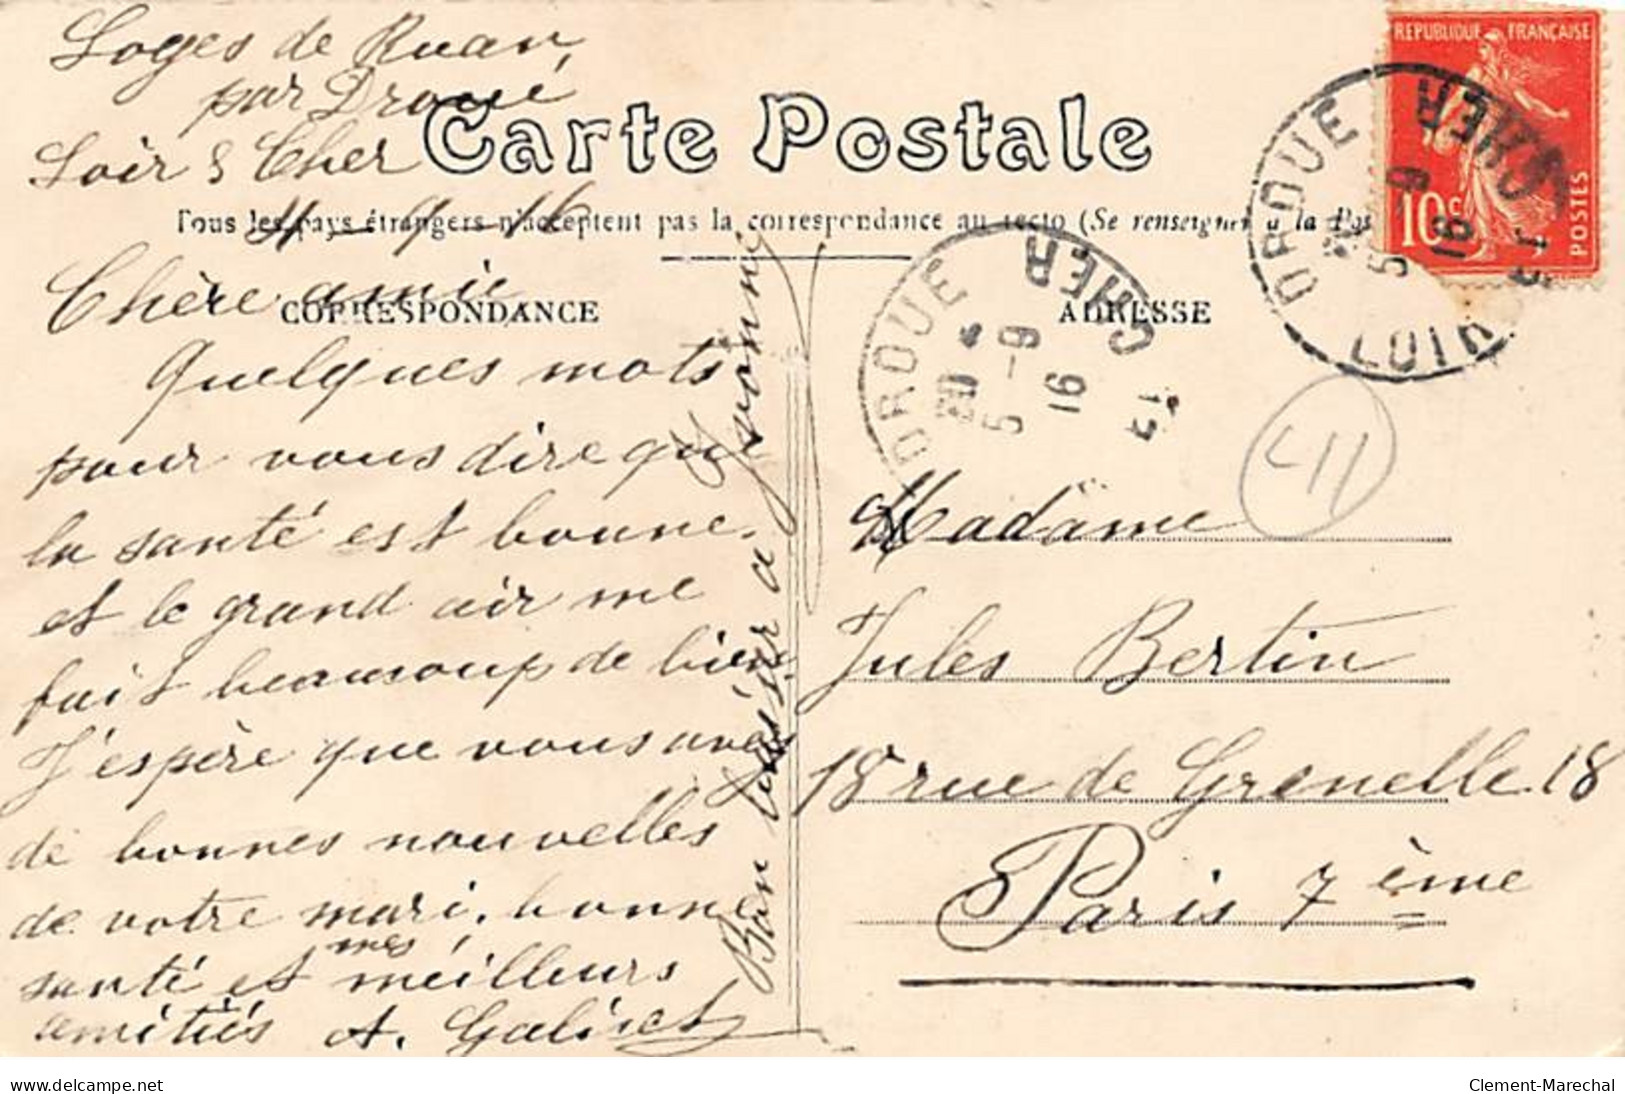 Loges de Ruan,
par Droué
Loir & Cher
4-9-16
Carte Postale
Tous les pays étrangers n'acceptent pas la correspondance au recto (Se renseigner à la Pos
CORRESPONDANCE
ADRESSE
Chère amie
Quelques mots
pour vous dire que
la santé est bonne.
et le grand air me
fait beaucoup de bien
J'espère que vous avez
de bonnes nouvelles
de votre mari, bonne
santé et mes meilleurs
amitiés A. Galinet
Bon baiser a Yvonne
RÉPUBLIQUE FRANÇAISE
10c
POSTES
DROUE
LOIR
CHER
5 -9
16
DROUE
CHER
20
5 -9
16
41
Madame
Jules Bertin
18 rue de Grenelle 18
Paris 7 ème
www.delcampe.net
Clement-Marechal